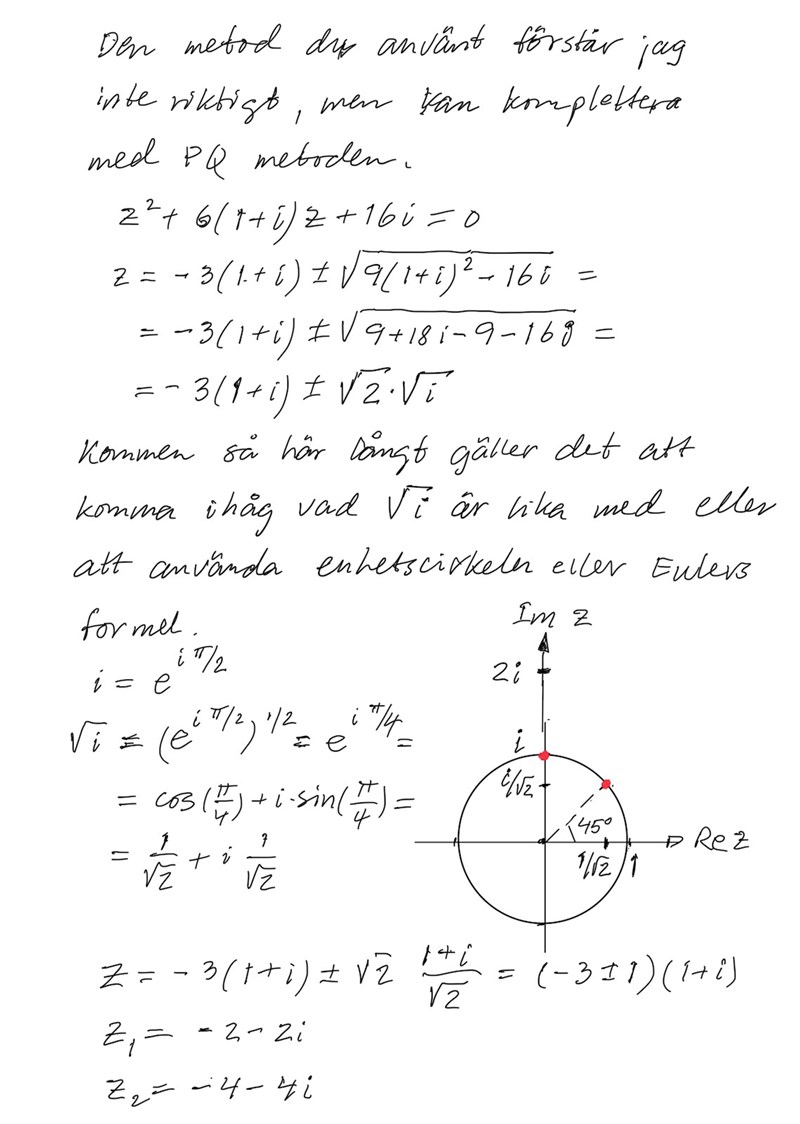 Den metod du använt förstår jag
inte riktigt, men kan komplettera
med PQ metoden.
z² + 6(1+i)z + 16i = 0
z = -3(1+i) ± √(9(1+i)² - 16i) =
= -3(1+i) ± √(9+18i-9-16i) =
= -3(1+i) ± √2·√i
Kommen så här långt gäller det att
komma ihåg vad √i är lika med eller
att använda enhetscirkeln eller Eulers
formel.
i = e^(iπ/2)
√i = (e^(iπ/2))^(1/2) = e^(iπ/4) =
= cos(π/4) + i·sin(π/4) =
= 1/√2 + i 1/√2
Im z
2i
i
i/√2
45°
1/√2
1
Re z
z = -3(1+i) ± √2 (1+i)/√2 = (-3±1)(1+i)
z₁ = -2-2i
z₂ = -4-4i